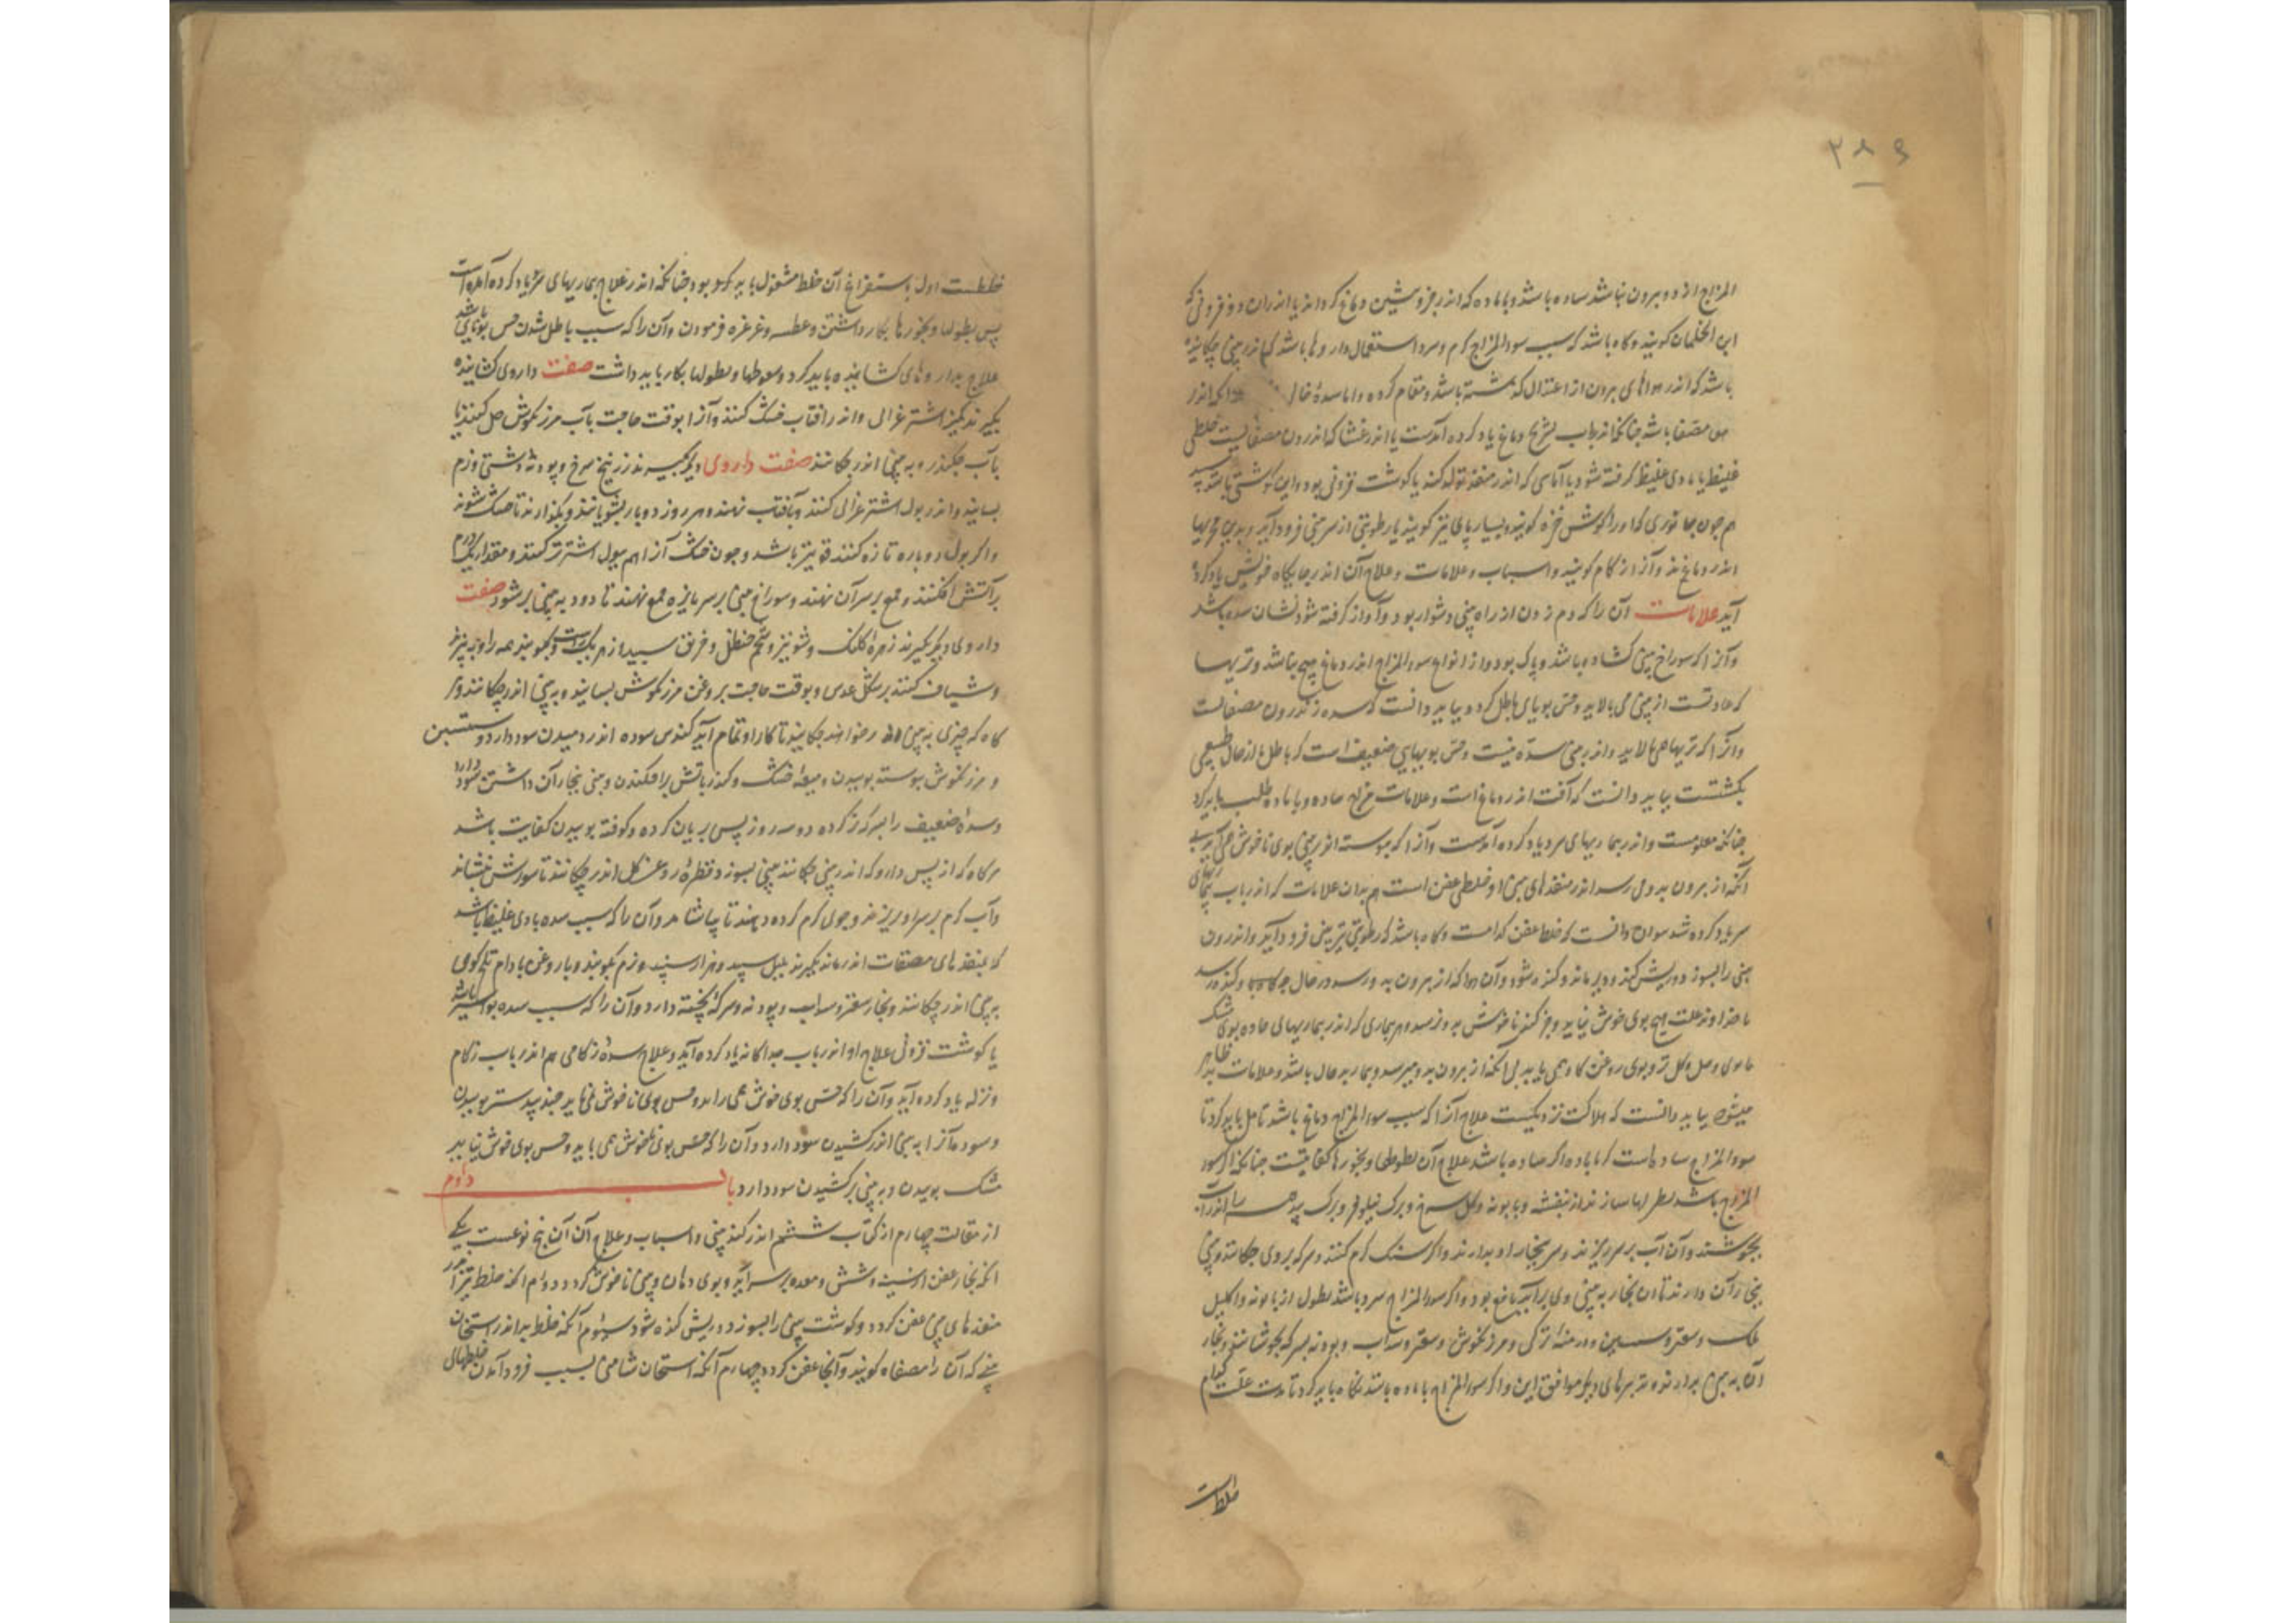 ۲۸۹
المزاج از دو بیرون نباشد ساده باشد و با ماده که اندر جزو شین دماغ کرد اند یا اندران دو فزونی که
این الحلمتان کویند و کاه باشد که سبب سوء المزاج کرم و سرد استعمال داروها باشد که اندر بینی چکانیده
باشد که اندر هواهای برون از اعتدال که کشته باشد و مقام کرده و اما سده خالی اندر
مصفا باشد چنانکه اندر باب تشریح دماغ یاد کرده آمدست یا اندر غشا که اندرون مصفا لیست خلطی
غلیظ یا بادی غلیظ کرفته شود یا آماسی که اندر منفذ تولد کند یا کوشت فزونی بود و این کوشتی باشد
هم چون جانوری که او را کوش خزه کویند و بسیار پای نیز کویند یا رطوبتی از سر بینی فرود آید و بدین مجریها
اندر و ماند و آنرا زکام کویند و اسباب و علامات و علاج آن اندر جایکاه خویش یاد کرده
آید علامات آن را که دم زدن از راه بینی دشوار بود و آواز کرفته شود نشان سده باشد
و آنرا که سوراخ بینی کشاده باشد و پاک بود و از انواع سوء المزاج اندر دماغ هیچ نباشد و تریها
که عادتست از بینی می بالاید و حس بویای باطل کردد بباید دانست که سده اندرون مصفاتست
و آنرا که تریها می بالاید و اندر بینی سده نیست و حس بویایی ضعیف است که باطل یا از حال طبیعی
بکشتست بباید دانست که آفت اندر دماغ است و علامات مزاج ساده و با ماده طلب باید کرد
چنانکه معلومست و اندر بیماریهای سر یاد کرده آمدست و آنرا که پیوسته اندر بینی بوی ناخوش می آید بی
آنکه از بیرون بدو می رسد اندر منفذهای بینی او خلطی عفن است هم بدان علامات که اندر باب بیماریهای
سر یاد کرده شد بتوان دانست که خلط عفن کدامست و کاه باشد که رطوبتی تیز بینی فرود آید و اندرون
بینی را بسوزد و ریش کند و دیر ماند و کنده شود و آن هوا که از بیرون بدو رسد در حال
تا خداوند علت هیچ بوی خوش نیابد و جز کند ناخوش بدو نرسد و هر بیماری که اندر بیماریهای حاده بوی مشک
و کل تر و بوی روغن کاو همی یابد بی آنکه از بیرون بدو میرسد و بیمار بد حال باشد و علامات بد ظاهر
میشود بباید دانست که هلاکت نزدیکست علاج آنرا که سبب سوء المزاج دماغ باشد تامل باید کرد تا
سوء المزاج ساده است یا با ماده اکر ساده باشد علاج آن بطولها و بخورها کفایتست چنانکه اکر سوء
المزاج باشد نطولها سازند از بنفشه و بابونه و کل سرخ و برک نیلوفر و برک بید
بجوشند و آن آب بر سر ریزند و سر ببخار او بدارند و اکر سنک کرم کنند و سرکه بر وی چکانند و بینی
ببخار آن دارند تا آن بخار به بینی وی بر آید نافع بود و اکر سوء المزاج سرد باشد نطول از بابونه و اکلیل
ملک و سعتر و افسنتین و درمنه ترکی و مرزنکوش و سعتر و سداب و بودنه بسرکه بجوشانند و بخار
آن به بینی بردارند و تدبیرهای دیکر موافق این و اکر سوء المزاج با ماده باشد نکاه باید کرد تا مدت علت کدام
خلط است
خلطست اول باستفراغ آن خلط مشغول باید بود چنانکه اندر علاج بیماریهای سر یاد کرده آمده است
پس نطولها و بخورها بکار داشتن و عطسه و غرغره فرمودن و آن را که سبب باطل شدن حس بویای سده باشد
علاج بداروهای کشاینده باید کرد و سعوطها و نطولها بکار باید داشت صفت داروی کشاینده
بکیرند کمیز اشتر غرابی و اندر آفتاب خشک کنند و آنرا بوقت حاجت بآب مرزنکوش حل کنند یا
بآب چکندر و به بینی اندر چکانند صفت داروی دیکر بکیرند زرنیخ سرخ و پودنه دشتی نرم
بسایند و اندر بول اشتر غرابی کنند و بآفتاب نهند و هر روز دو بار بشویانند و بکذارند تا خشک شود
و اکر بول دوباره تازه کنند قوی تر باشد و چون خشک آنرا هم ببول اشتر تر کنند و مقدار یک درم
بر آتش افکنند و قمع بر سر آن نهند و سوراخ بینی بر سر مایزه قمع نهند تا دود به بینی بر شود صفت
داروی دیکر بکیرند زهره کلنک و شونیز و شحم حنظل و خربق سپید از هر یک راست و بکوبند همه را و ببیزند
و شیاف کنند بر شکل عدس و بوقت حاجت بروغن مرزنکوش بسایند و به بینی اندر چکانند و هر
کاه که چیزی به بینی در خواهند چکانید تا کار او تمام آید کندس سوده اندر دمیدن سود دارد و افسنتین
و مرزنکوش پیوسته بوییدن و میعه خشک و کندر بآتش بر افکندن و بینی ببخار آن داشتن سود دارد
و سده ضعیف را بسرکه تر کرده دو سه روز پس بریان کرده و کوفته بوییدن کفایت باشد
هر کاه که از پس دارو که اندر بینی چکانند بینی بسوزد قطره روغن کل اندر چکانند تا سوزش بنشاند
و آب کرم بر سر او ریزند و جوی کرم کرده دهند تا بیاشامد و آن را که سبب سده بادی غلیظ باشد
که بمنفذهای مصفات اندر ماند بکیرند پلپل سپید و هزار اسپند و نرم بکوبند و با روغن بادام تلخ کوهی
به بینی اندر چکانند و بخار سعتر و سداب و پودنه و سرکه پخته دارد و آن را که سبب سده بواسیر باشد
یا کوشت فزونی علاج او اندر باب جداکانه یاد کرده آید و علاج سده زکامی هم اندر باب زکام
و نزله یاد کرده آید و آن را که حس بوی خوش همی یابد و حس بوی ناخوش نمی یابد جندبیدستر بوییدن
و سوده آنرا به بینی اندر کشیدن سود دارد و آن را که حس بوی ناخوش همی یابد و حس بوی خوش نیابد
مشک بوییدن و به بینی بر کشیدن سود دارد باب دوم
از مقالت چهارم از کتاب ششم اندر کند بینی و اسباب و علاج آن آن پنج نوعست یکی
آنکه بخار عفن از سینه و شش و معده بر سر آید و بوی دهان و بینی ناخوش کردد دوم آنکه خلط تیز اندر
منفذهای بینی عفن کردد و کوشت بینی را بسوزد و ریش کنده شود سیوم آنکه خلط بد اندر استخوان
بینی که آن را مصفاه کویند و آنجا عفن کردد چهارم آنکه استخوان شامی بسبب فرود آمدن خلطهای